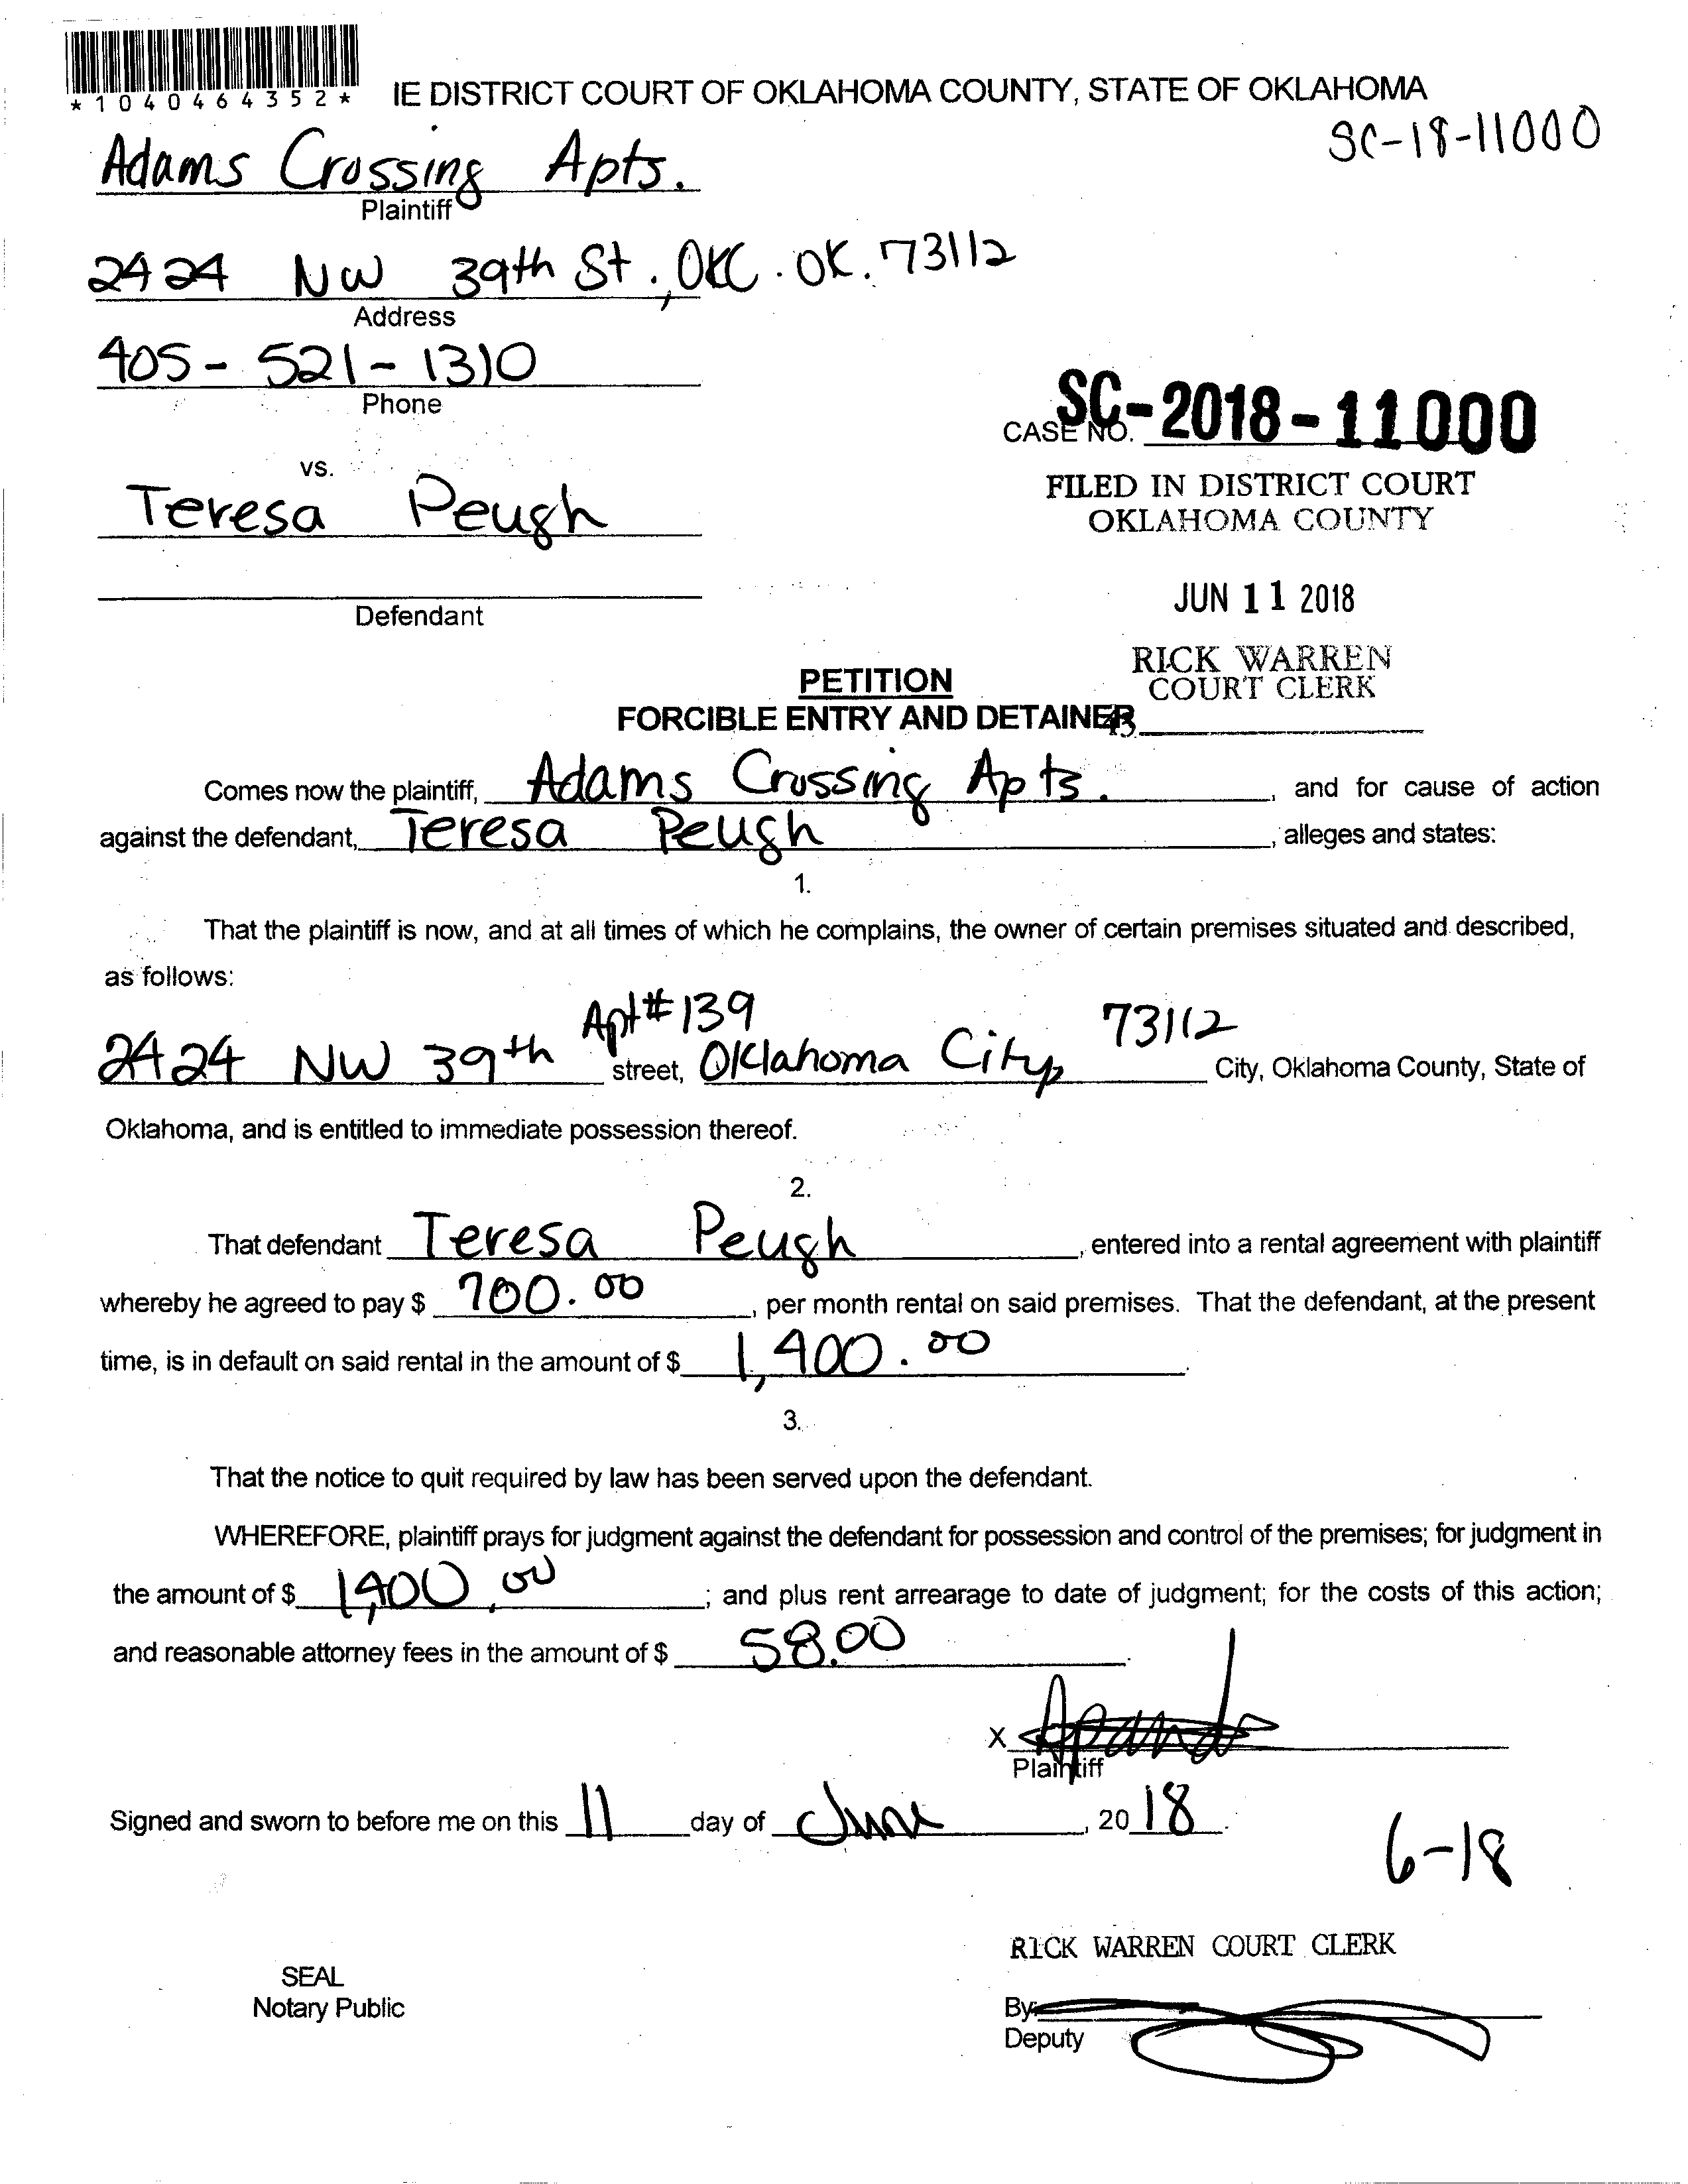 *1040464352*
IE DISTRICT COURT OF OKLAHOMA COUNTY, STATE OF OKLAHOMA
SC-18-11000
Adams Crossing Apts.
Plaintiff
2424 NW 39th St., OKC. OK. 73112
Address
405-521-1310
Phone
CASE NO. SC-2018-11000
vs.
FILED IN DISTRICT COURT
OKLAHOMA COUNTY
Teresa Peugh
JUN 11 2018
Defendant
RICK WARREN
COURT CLERK
PETITION
FORCIBLE ENTRY AND DETAINER
Comes now the plaintiff, Adams Crossing Apts. , and for cause of action
against the defendant, Teresa Peugh , alleges and states:
1.
That the plaintiff is now, and at all times of which he complains, the owner of certain premises situated and described,
as follows:
Apt# 139 73112
2424 NW 39th street, Oklahoma City, City, Oklahoma County, State of
Oklahoma, and is entitled to immediate possession thereof.
2.
That defendant Teresa Peugh , entered into a rental agreement with plaintiff
whereby he agreed to pay $ 700.00 , per month rental on said premises. That the defendant, at the present
time, is in default on said rental in the amount of $ 1,400.00 .
3.
That the notice to quit required by law has been served upon the defendant.
WHEREFORE, plaintiff prays for judgment against the defendant for possession and control of the premises; for judgment in
the amount of $ 1,400.00 ; and plus rent arrearage to date of judgment; for the costs of this action;
and reasonable attorney fees in the amount of $ 58.00 .
X
Plaintiff
Signed and sworn to before me on this 11 day of June , 20 18 .
6-18
RICK WARREN COURT CLERK
SEAL
Notary Public
By:
Deputy